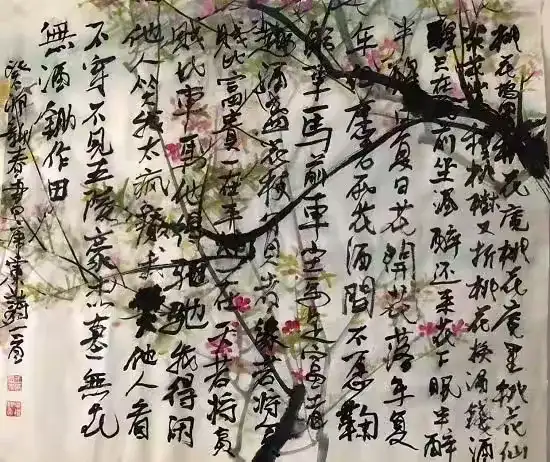 桃花塢里桃花庵桃花庵里桃花仙
桃花仙人種桃樹又折桃花換酒錢酒
醒只在花前坐酒醉還來花下眠半醉
半醒日復日花開花落年復
年 老死花酒間不愿鞠
躬車馬前車塵馬足富者
趣酒盞花枝 者緣若將貧
賤比富貴一在平地一在天若將貧
賤比車馬他得驅馳我得閑
他人笑我太瘋癲我笑他人看
不穿不見五陵豪杰墓無花
無酒鋤作田
癸卯 春